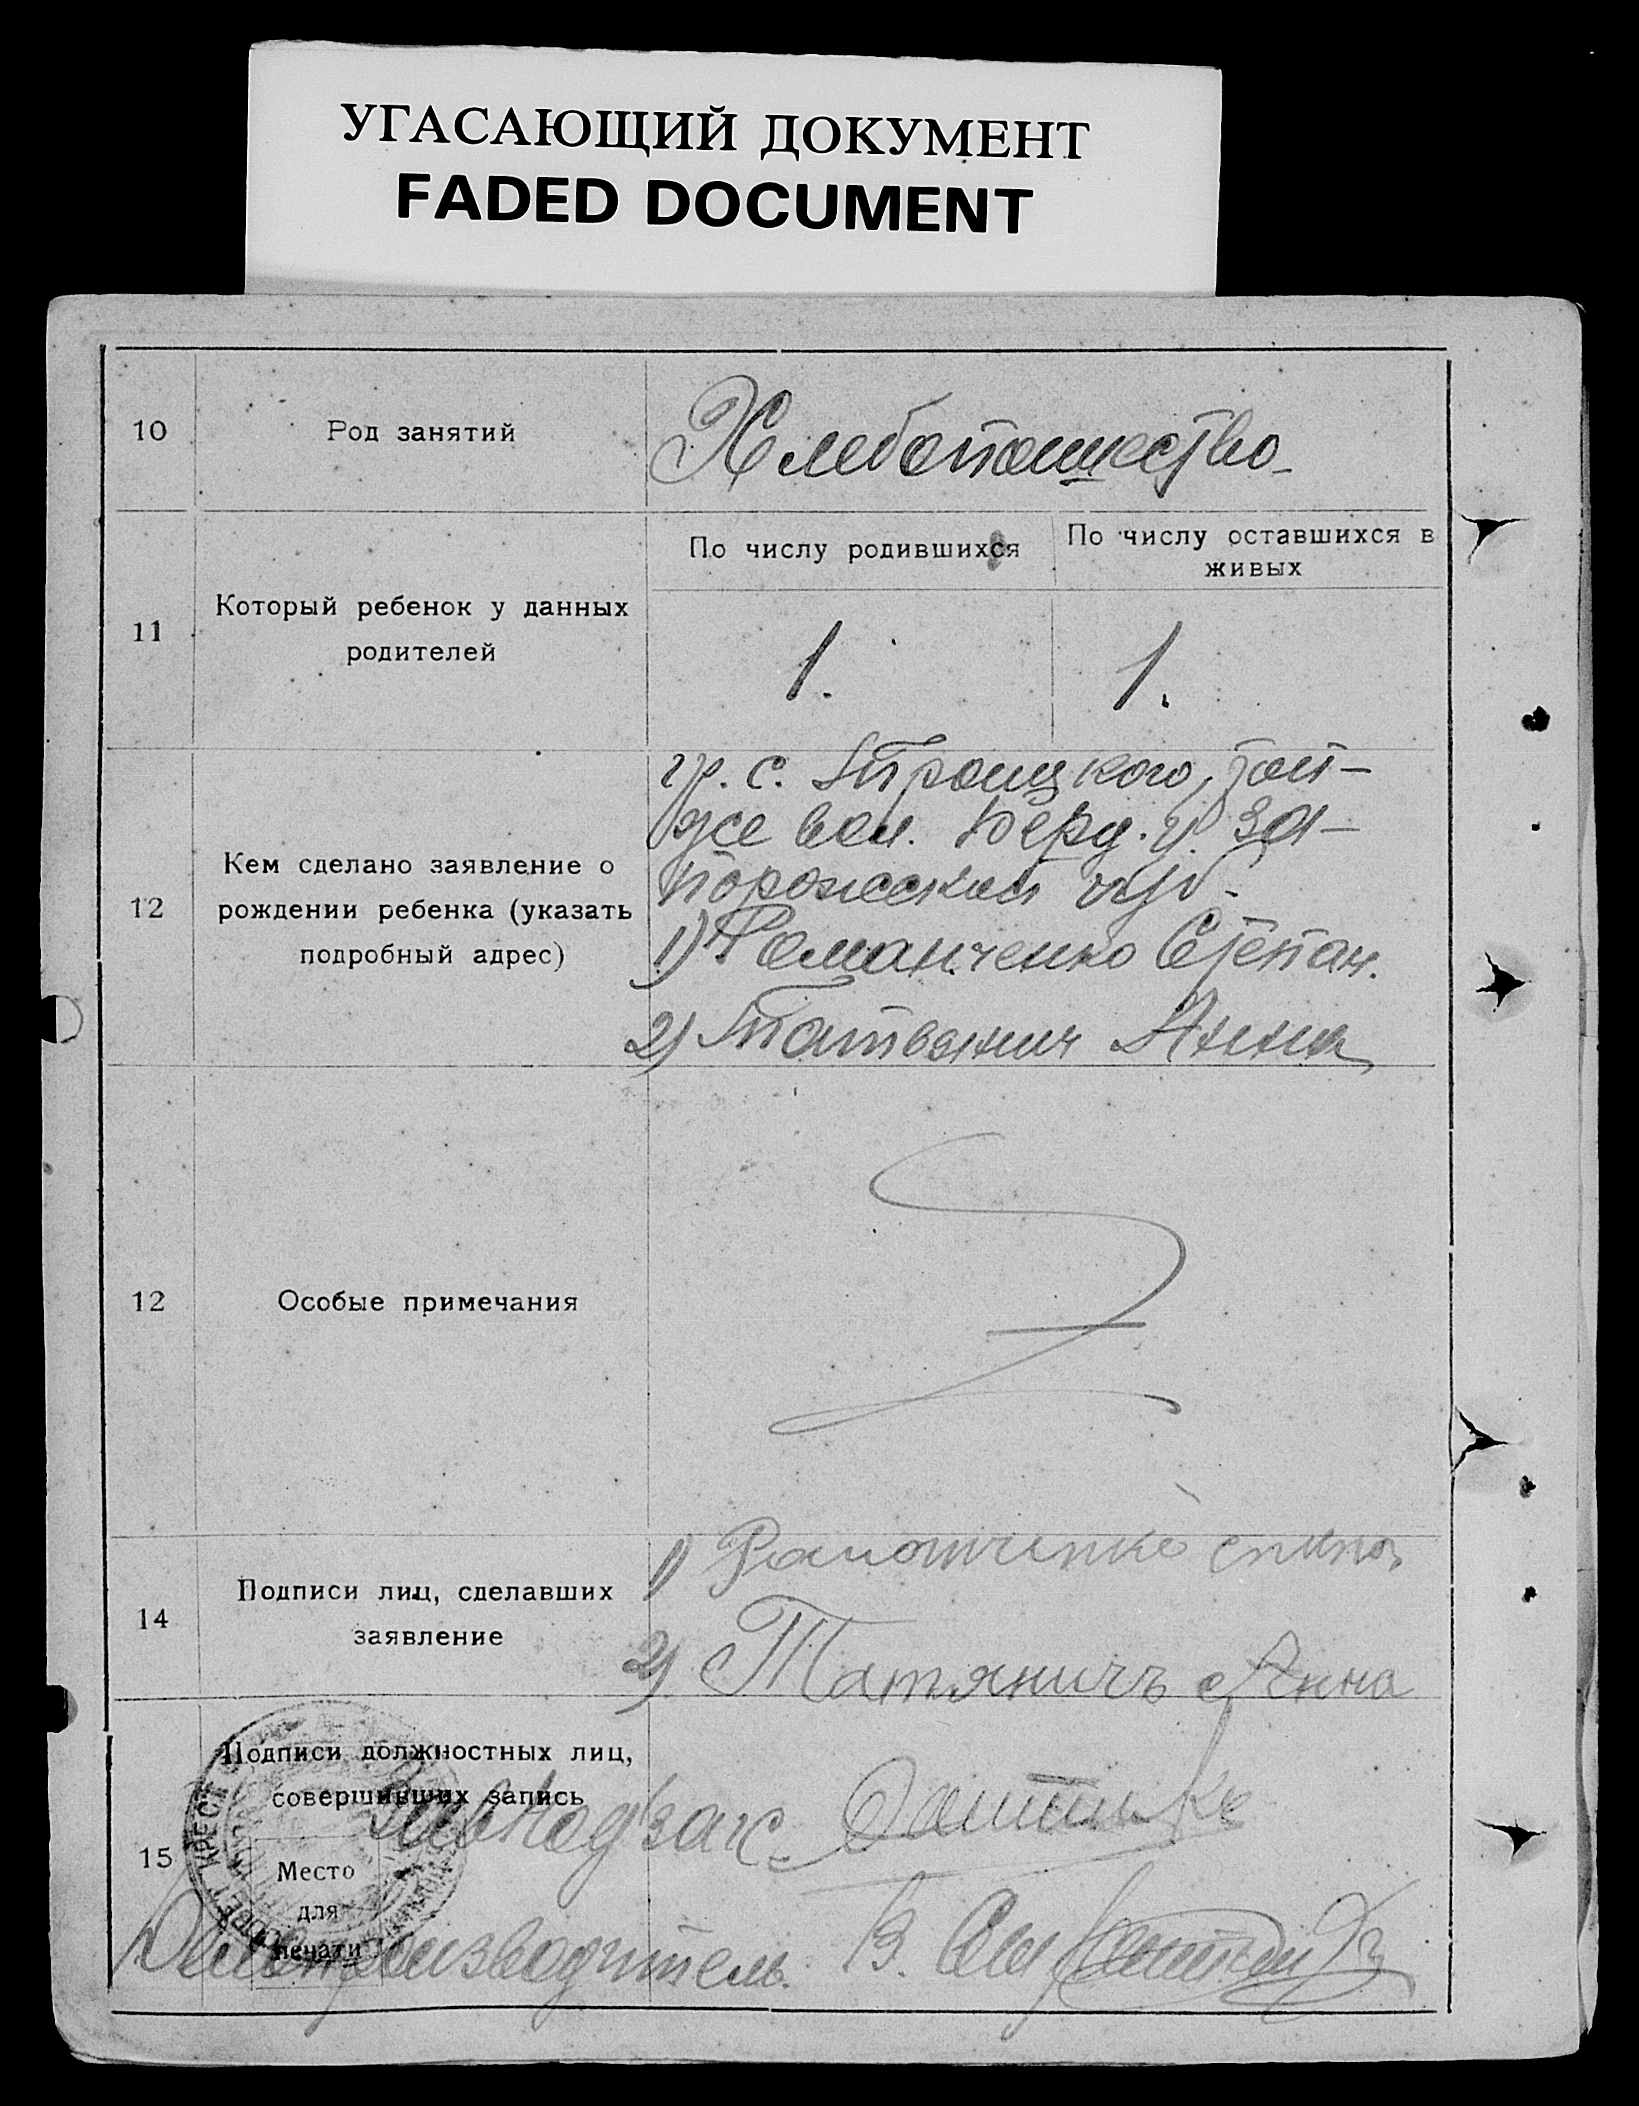 УГАСАЮЩИЙ ДОКУМЕНТ
FADED DOCUMENT
10
Род занятий
Хлебопашество
11
Который ребенок у данных
родителей
По числу родившихся
По числу оставшихся в
живых
1.
1.
12
Кем сделано заявление о
рождении ребенка (указать
подробный адрес)
гр. с. Троицкого, той-
же вол. Берд. у. За-
порожской губ.
1) Романченко Степан.
2) Татьянич Анна
12
Особые примечания
14
Подписи лиц, сделавших
заявление
1) Романченко
2) Татяничъ Анна
15
Подписи должностных лиц,
совершивших запись
Место
для
печати
Делопроизводитель. В.